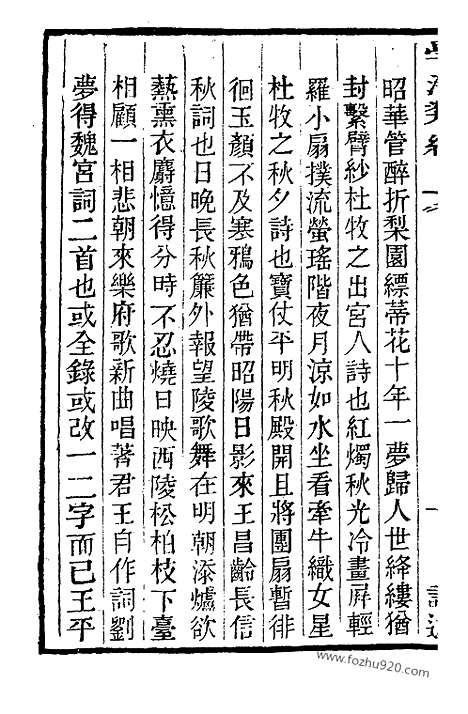 昭華管醉折梨園縹蒂花十年一夢歸人世絳縷猶
封繫臂紗杜牧之出宮人詩也紅燭秋光冷畫屛輕
羅小扇撲流螢瑤階夜月涼如水坐看牽牛織女星
杜牧之秋夕詩也寶仗平明秋殿開且將團扇暫徘
徊玉顏不及寒鴉色猶帶昭陽日影來王昌齡長信
秋詞也日晚長秋簾外報望陵歌舞在明朝添爐欲
熱熏衣麝憶得分時不忍燒日映西陵松柏枝下臺
相顧一相悲朝來樂府歌新曲唱著君王自作詞劉
夢得魏宮詞二首也或全錄或改一二字而已王平
www.fozhu920.com